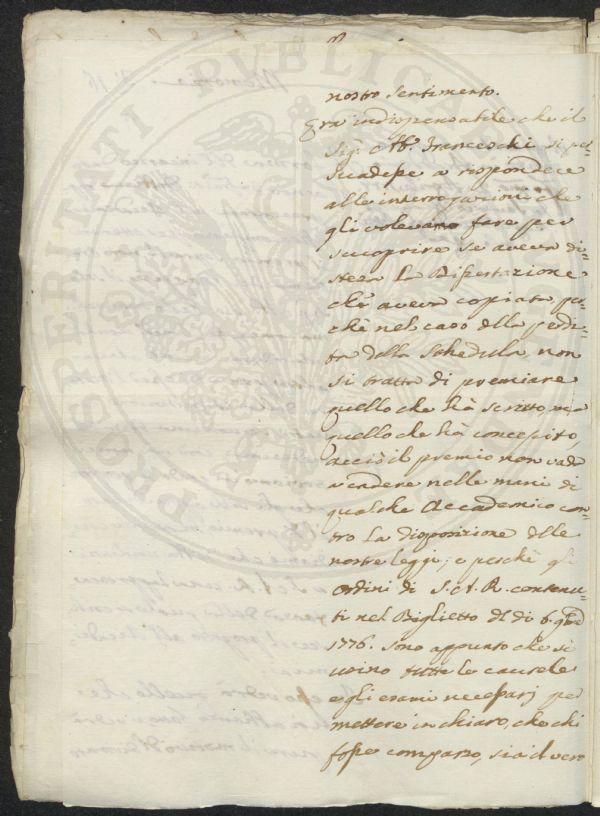 nostro sentimento.
Era indispensabile che il
Sig: Ab: Franceschi si per=
suadesse a rispondere
alle interrogazioni che
gli volevano fare per
scuoprire se aveva di=
stesa la Dissertazione
che aveva copiata, per=
chè nel caso della perdi=
ta della schedula non
si tratta di premiare
quello che hà scritto, mà
quello che hà concepito,
acciò il premio non vada
a cadere nelle mani di
qualche Accademico con=
tro la disposizione delle
nostre leggi; e perchè gli
Ordini di S. A. R. contenu=
ti nel Biglietto dl dì 6. 9bre
1776. sono appunto che si
usino tutte le cautele
e gli esami necessarj per
mettere in chiaro, che chi
fosse comparso, sia il vero
PROSPERITATI PUBLICAE AUGENDAE